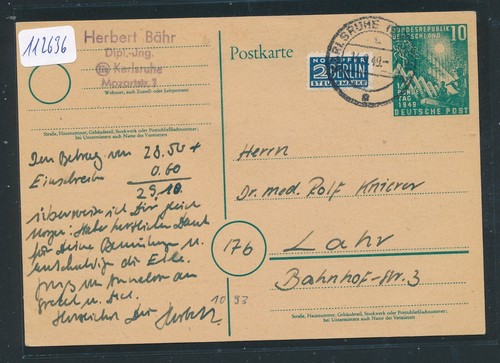 112636
Herbert Bähr
Dipl.-Ing.
Karlsruhe
Mozartstr. 3
Wohnort, auch Zustell- oder Leitpostamt
Straße, Hausnummer, Gebäudeteil, Stockwerk oder Postschließfachnummer;
bei Untermietern auch Name des Vermieters
Postkarte
NOTOPFER
2 BERLIN
STEUERMARKE
KARLSRUHE
49
BUNDESREPUBLIK
DEUTSCHLAND
10
1949
DEUTSCHE POST
Den Betrag von 28.50 +
Einschreiben 0.60
29.10
überweise ich Dir gleich
morgen. Habe herzlichen Dank
für Deine Bemühungen u.
entschuldige die Eile.
an
u.
Herzlichst Dein
10 93
Herrn
Dr. med. Rolf Knierer
17b
Lahr
Bahnhof-Str. 3
Straße, Hausnummer, Gebäudeteil, Stockwerk oder Postschließfachnummer;
bei Untermietern auch Name des Vermieters